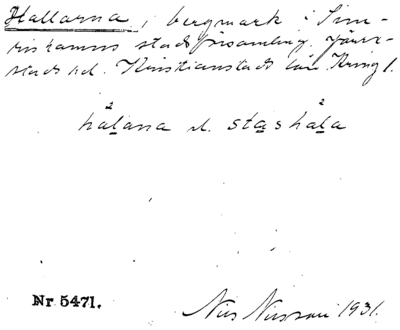 Hallarna, bergmark i Sim-
rishamns stadsförsamling. Järre-
stads hd. Kristianstads län.
hålana el. stashåla
Nr 5471.
Nils Nilsson 1931.